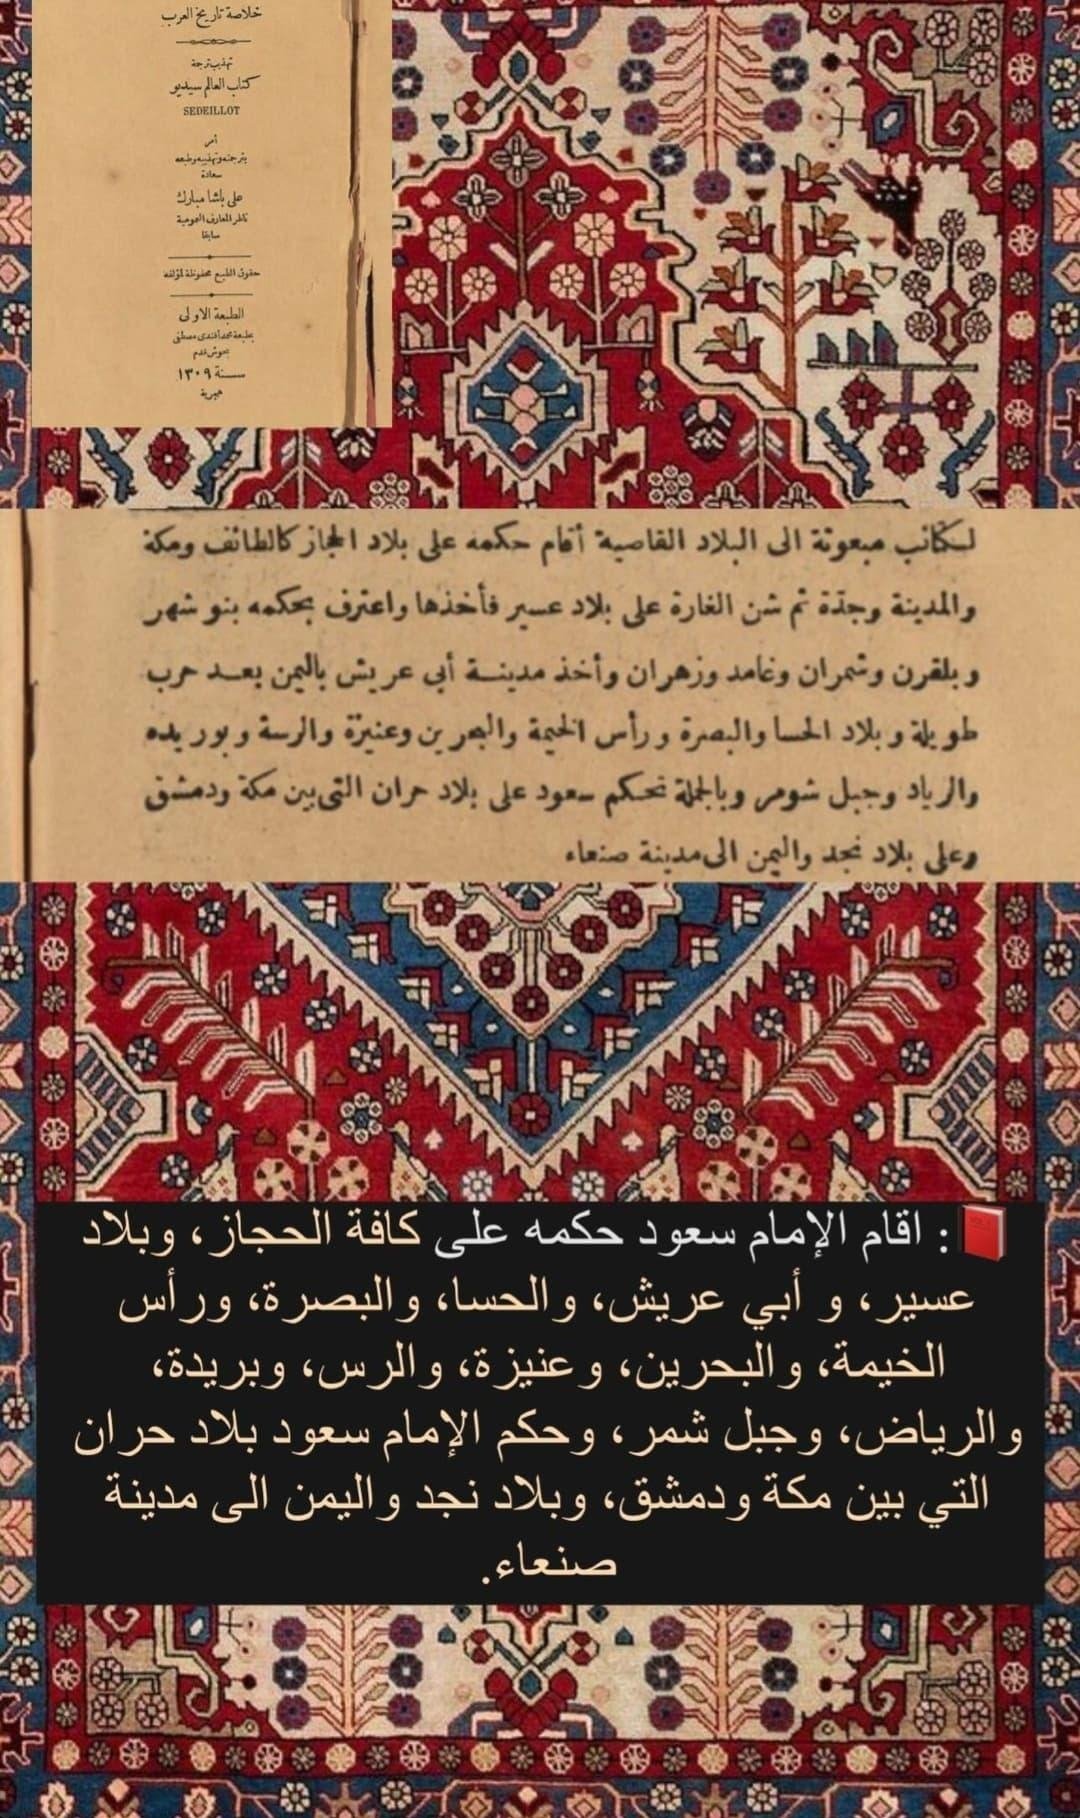 خلاصة تاريخ العرب
تهذيب ترجمة
كتاب العالم سيديو
SEDEILLOT
أمر
بترجمته وتهذيبه وطبعه
سعادة
على باشا مبارك
ناظر المعارف العمومية
سابقا
حقوق الطبع محفوظة لمؤلفه
الطبعة الاولى
بمطبعة محمد أفندى مصطفى
بحوش قدم
سنة ١٣٠٩
هجرية
لكتائب مبعوثة الى البلاد القاصية أقام حكمه على بلاد الحجاز كالطائف ومكة
والمدينة وجدّة ثم شن الغارة على بلاد عسير فأخذها واعترف بحكمه بنو شهر
وبلقرن وشمران وغامد وزهران وأخذ مدينة أبى عريش باليمن بعد حرب
طويلة وبلاد الحسا والبصرة ورأس الخيمة والبحرين وعنيزة والرسة وبوريده
والرياد وجبل شومر وبالجملة تحكم سعود على بلاد حران التى بين مكة ودمشق
وعلى بلاد نجد واليمن الى مدينة صنعاء
📕: اقام الإمام سعود حكمه على كافة الحجاز، وبلاد
عسير، و أبي عريش، والحسا، والبصرة، ورأس
الخيمة، والبحرين، وعنيزة، والرس، وبريدة،
والرياض، وجبل شمر، وحكم الإمام سعود بلاد حران
التي بين مكة ودمشق، وبلاد نجد واليمن الى مدينة
صنعاء.